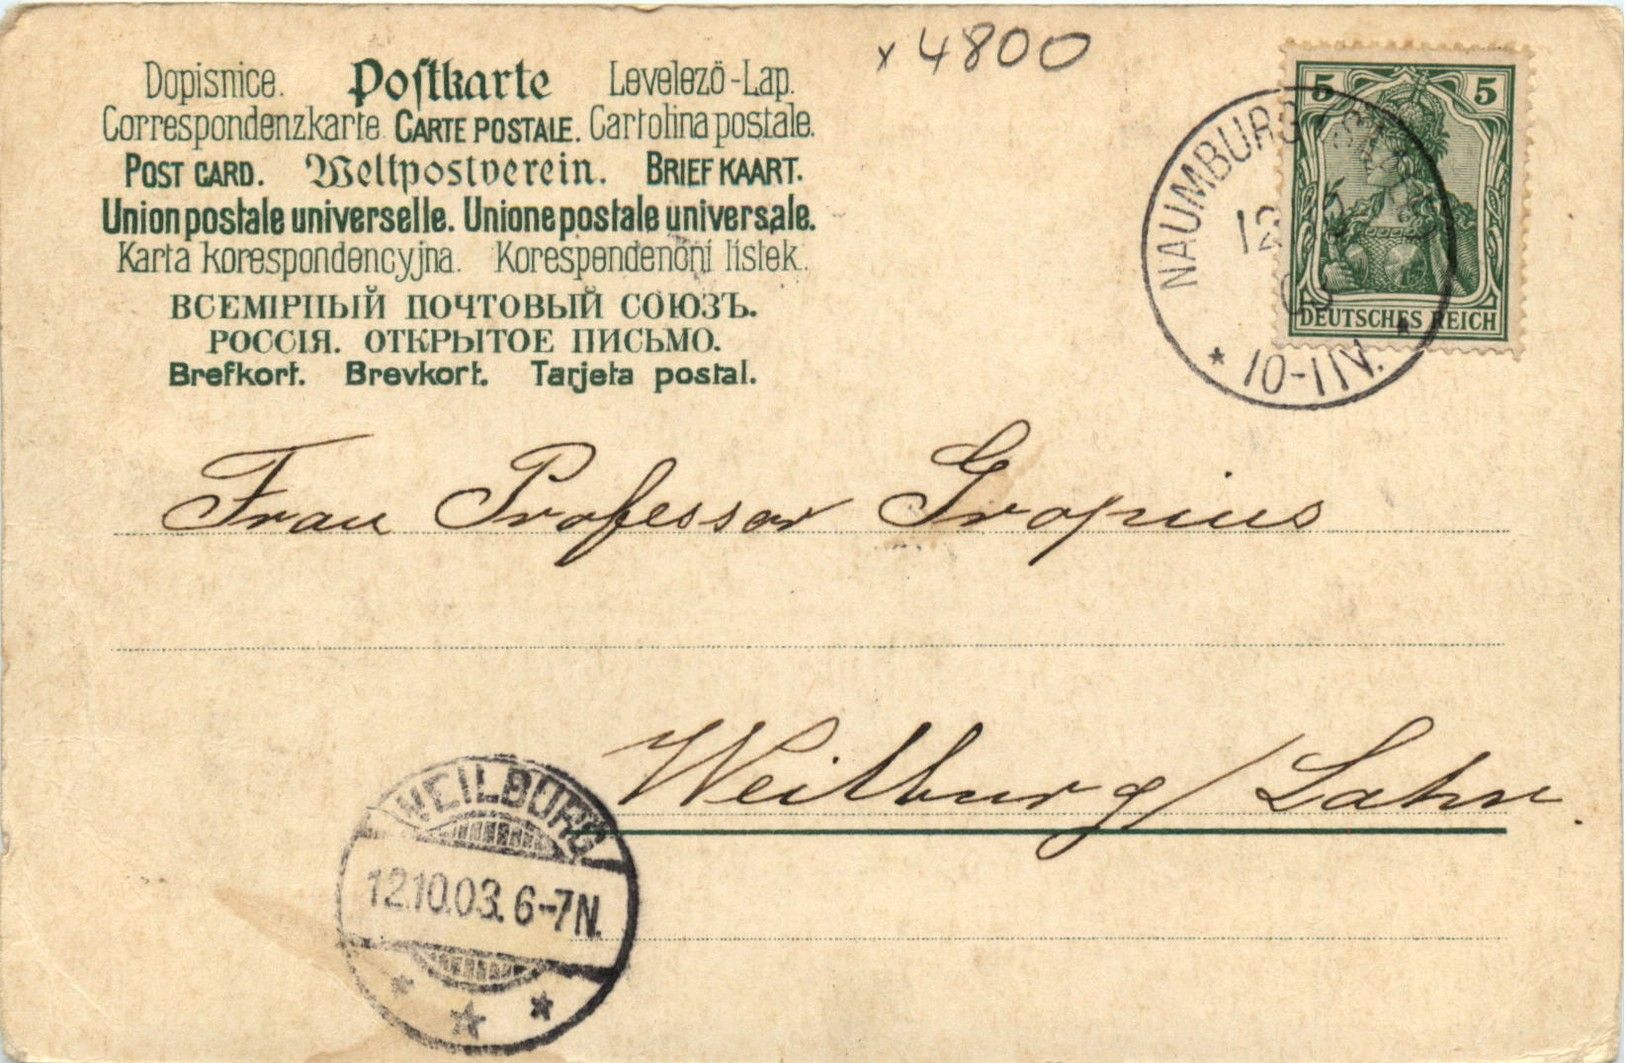 x 4800
Dopisnice. Postkarte Levelező-Lap.
Correspondenzkarte. CARTE POSTALE. Cartolina postale.
POST CARD. Weltpostverein. BRIEFKAART.
Union postale universelle. Unione postale universale.
Karta korespondencyjna. Korespondenční lístek.
ВСЕМІРНЫЙ ПОЧТОВЫЙ СОЮЗЪ.
РОССІЯ. ОТКРЫТОЕ ПИСЬМО.
Brefkort. Brevkort. Tarjeta postal.
5 5
DEUTSCHES REICH
NAUMBURG
12
03
* 10-11V. *
Frau Professor Gropius
Weilburg/Lahn.
WEILBURG
12.10.03. 6-7N.
* * *